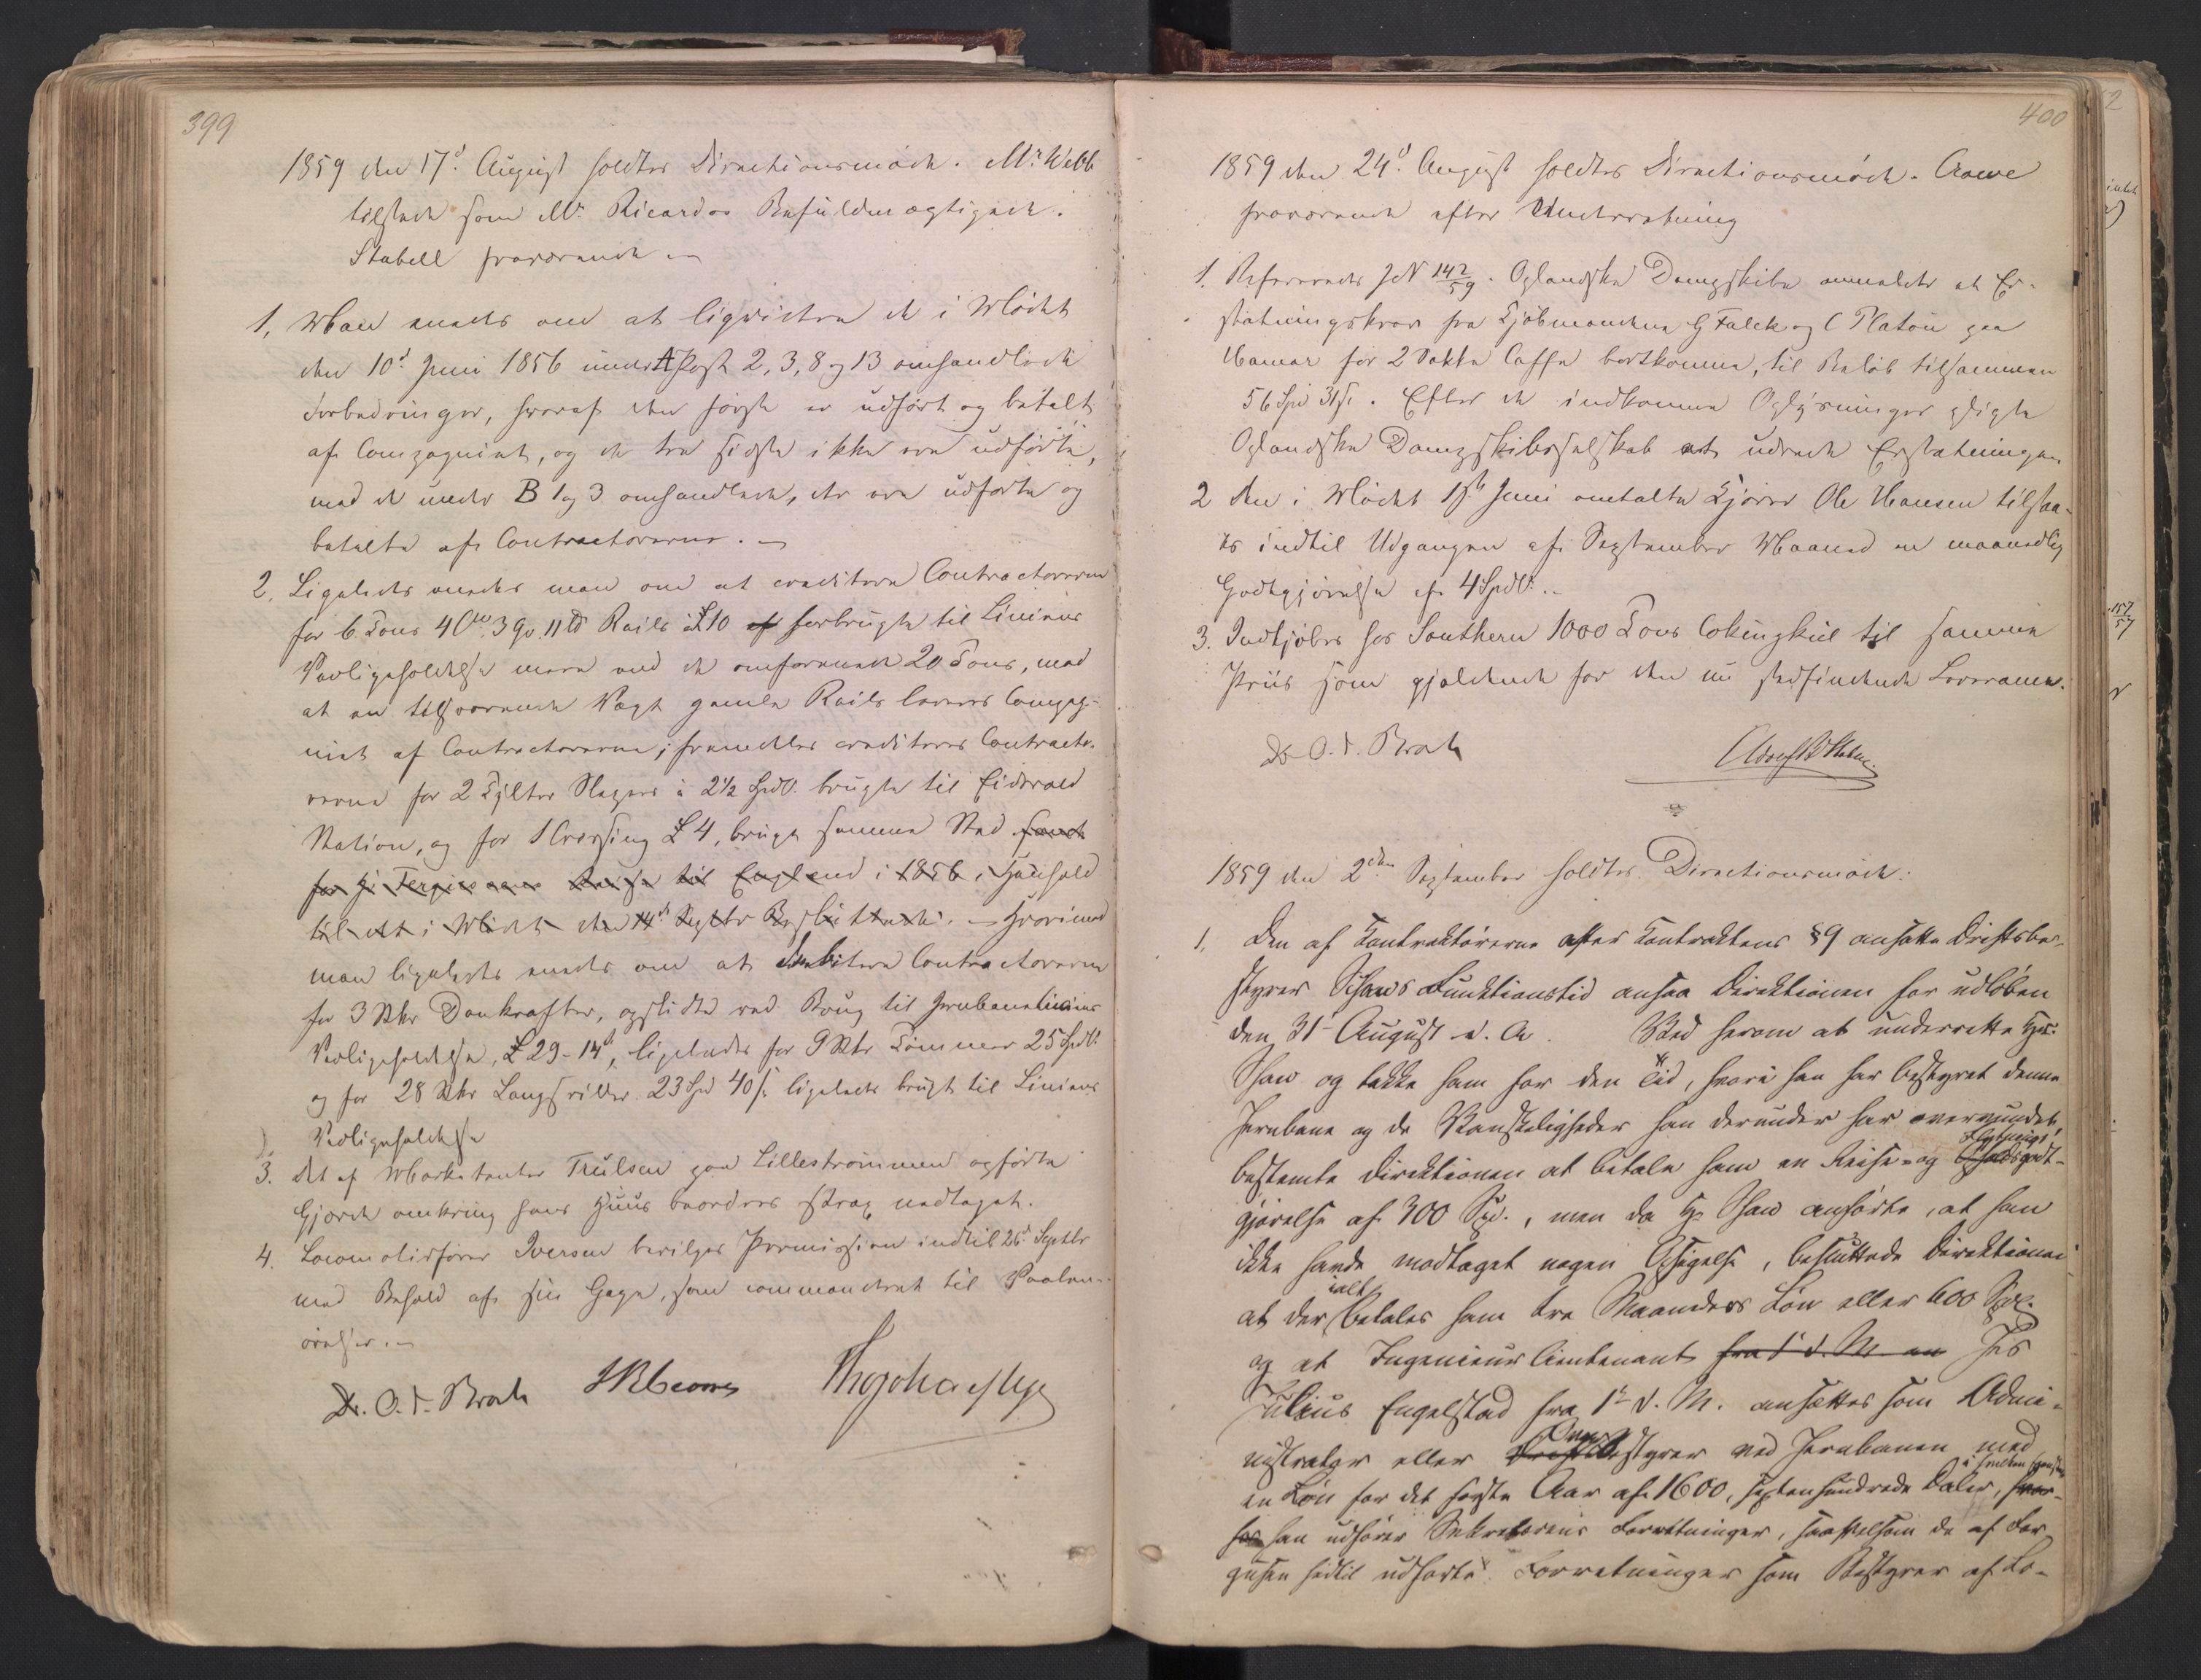 399
1859 den 17d. August holdtes Directionsmöde. Mr. Webb
tilstede som Mr. Ricardos Befuldmægtigede.
Stabell fraværende
1. Man enedes om at liqvidere de i Mödet
den 10d Juni 1856 under A Post 2, 3, 8 og 13 omhandlede
Forbedringer, hvoraf den förste er udfört og betalt
af Compagniet, og de tre sidste ikke ere udförte,
mod de under B 1 og 3 omhandlede, der ere udförte og
betalte af Contractorerne.
2. Ligeledes enedes man om at creditere Contractorerne
for 6 Tons 4 Ctr. 3 Qv. 11 td Rails á £10 af forbrugte til Liniens
Vedligeholdelse mere end de omforenede 20 Tons, mod
at en tilsvarende Vægt gamle Rails leveres Compag-
niet af Contractorerne; fremdeles crediteres Contracto-
rerne for 2 Tylter Slepers á 2½ Spd. brugte til Eidsvold
Station, og for 1 Crossing £ 4, brugt samme Sted samt
for Hr Fergusons Reise til England i 1856, i Henhold
til det i Mödet den 14d Septbr Besluttede. – Hvorimod
man ligeledes enedes om at debitere Contractorerne
for 3 Stkr Donkrafter, opslidte ved Brug til Jernbaneliniens
Vedligeholdelse, £ 29-14s, ligeledes for 9 Stkr Tömmer 25 Spd.
og for 28 Stkr Langsviller 23 Spd 40 s. ligeledes brugt til Liniens
Vedligeholdelse
3. Det af Marketenter Trulsen paa Lilleströmmen opförte
Gjerde omkring hans Huus beordres strax nedtaget.
4. Locomotivförer Iversen bevilges Permission indtil 26d Septbr
med Behold af sin Gage, som commanderet til Vaaben-
övelser.
Dr. O. J. Broch J R Crowe

400
1859 den 24d. August holdtes Directionsmöde. Crowe
fraværende efter Underretning
1. Refereredes J N 142/59. Oplandske Dampskibe anmeldte et Er-
statningskrav fra Kjöbmændene G Falck og C Platou paa
Hamar for 2 Sække Caffe bortkomne, til Belöb tilsammen
56 Spd 31 s. Efter de indkomne Oplysninger pligte
Oplandske Dampskibsselskab at udrede Erstatningen
2 Den i Mödet 15de Juni omtalte Kjörer Ole Hansen tilstaa-
es indtil Udgangen af September Maaned en maanedlig
Godtgjörelse af 4 Spd.
3. Indkjöbes hos Southern 1000 Tons Cokingkul til samme
Priis som gjeldende for den nu stedfindende Leverance.
Dr O. J. Broch
1859 den 2den September holdtes Directionsmöde:
1. Den af Kontraktörerne efter Kontraktens §9 ansatte Driftsbe-
styrer Schaws Funktionstid ansaa Direktionen for udlöben
den 31te August d. A. Ved herom at underrette Hr:
Schaw og takke ham for den Tid, hvori han har bestyret denne
Jernbane og de Vanskeligheder han derunder har overvundet,
bestemte Direktionen at betale ham en Reise- og Flytnings
godt-
gjörelse af 300 Spd., men da Hr Schaw anförte, at han
ikke havde modtaget nogen Opsigelse, besluttede Direktionen
at der ialt betales ham tre Maaneders Lön eller 600 Spd.
og at Ingenieurlieutenant fra 1' d. M. en Jes
Julius Engelstad fra 1te d. M. ansættes som Admi-
nistrator eller Drifts Overbestyrer ved Jernbanen med
en Lön for det förste Aar af 1600, sextenhundrede Daler, hvor-
for han udförer Sekretærens Forretninger, saavelsom de af Fer-
gusen hidtil udförte Forretninger som Bestyrer af Lo-
157/57